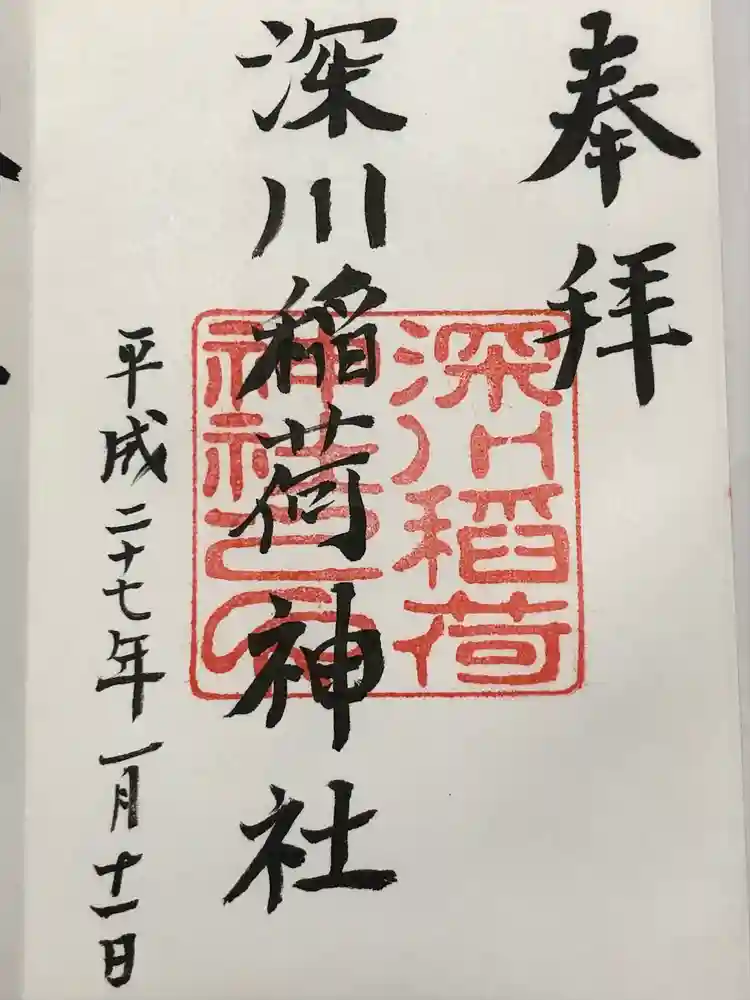 奉拝
深川稲荷神社
平成二十七年一月十一日
深川稲荷
神社之印